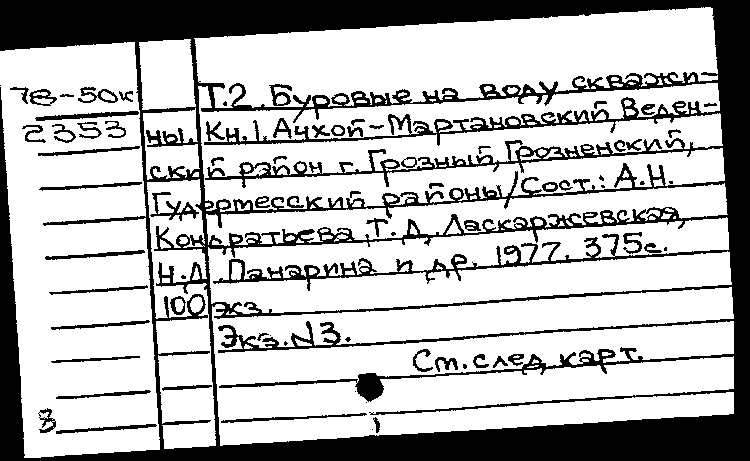 78-50к Т.2. Буровые на воду скважи-
2353 ны. Кн.1. Ачхой-Мартановский, Веден-
ский район г. Грозный, Грозненский,
Гудермесский районы/Сост.: А.Н.
Кондратьева, Т.Д. Ласкаржевская,
Н.Д. Панарина и др. 1977. 375с.
100 экз.
Экз.N3.
См. след. карт.
8